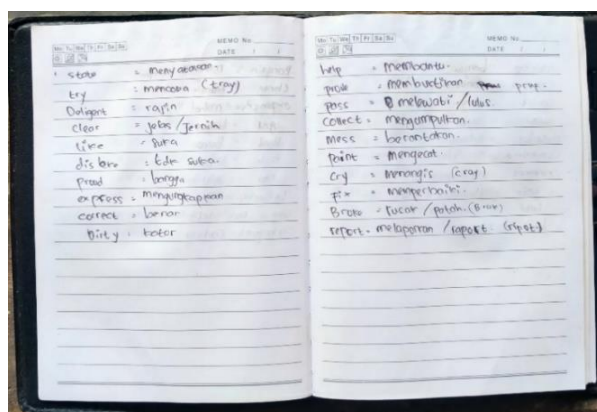 Mo Tu We Th Fr Sa Su
MEMO No.
DATE / /
state = menyatakan.
try = mencoba (tray)
= rajin
clear = jelas / Jernih
like = suka
= tdk suka.
proud = bangga
express = mengungkapkan
correct = benar
Dirty = kotor
Mo Tu We Th Fr Sa Su
MEMO No.
DATE / /
help = membantu.
prove = membuktikan
pass = melewati / lulus.
collect = mengumpulkan.
mess = berantakan.
paint = mengecat.
cry = menangis (cray)
fix = memperbaiki.
Broke = rusak / patah.
report = melaporkan / raport